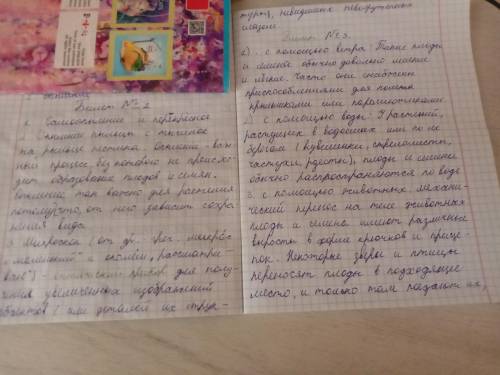 опылении
Билет №2
1. Самоопыление и перекрестное
2. Опыление пыльцы с тычинок
на рыльце пестика. Опыление - важ-
ный процесс, без которого не происхо-
дит образование плодов и семян.
Опыление так важно для растения
потому что, от него зависит сохра-
нения вида.
3. Микроскоп (от др. греч.
"маленький" и
- оптический прибор для полу-
чения увеличенных изображений
объектов (или деталей их струк-
туры, невидимых невооружённым
глазом.
Билет №3.
1). с помощью ветра. Такие плоды
и семена обычно довольно мелкие
и лёгкие. Часто они снабжены
приспособлениями для полёта
крылышками или парашютиками.
2). с помощью воды: У растений,
растущих в водоёмах или по их
берегам (кувшинки, стрелолисты,
частухи, рдесты), плоды и семена
обычно распространяются по воде
3. с помощью животных механи-
ческий перенос на теле животных
плоды и семена имеют различные
выросты в форме крючков и прице-
пок. Некоторые звери и птицы
переносят плоды в подходящее
место, и только там поедают их,